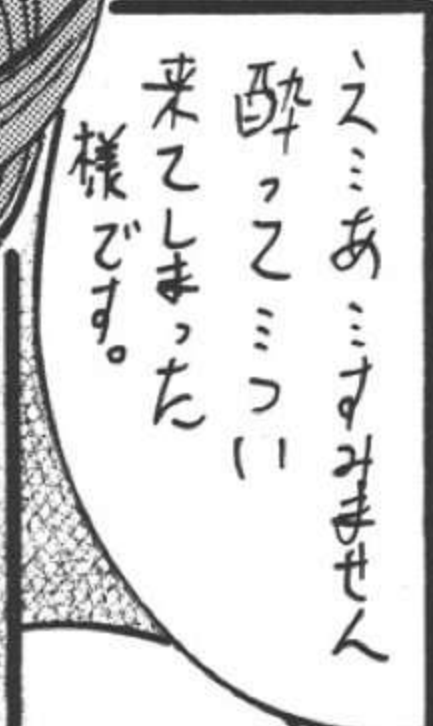 え…あ…すみません
酔って…つい
来てしまった
様です。